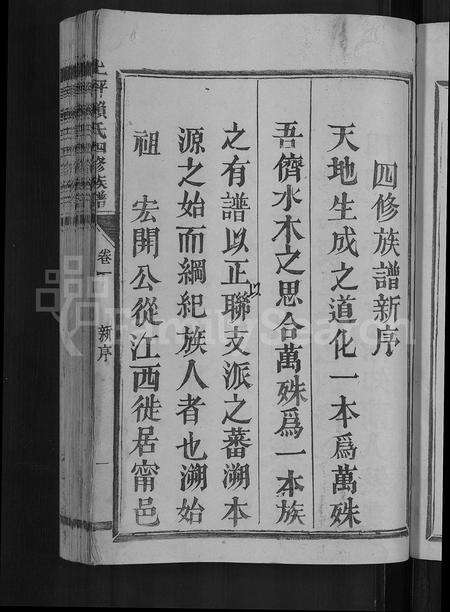 四修族譜新序
天地生成之道化一本爲萬殊
吾儕水木之思合萬殊爲一本族
之有譜以正聯支派之蕃溯本
以
源之始而綱紀族人者也溯始
祖 宏開公從江西徙居甯邑
上坪賴氏四修族譜
卷
新序
一
FamilySearch